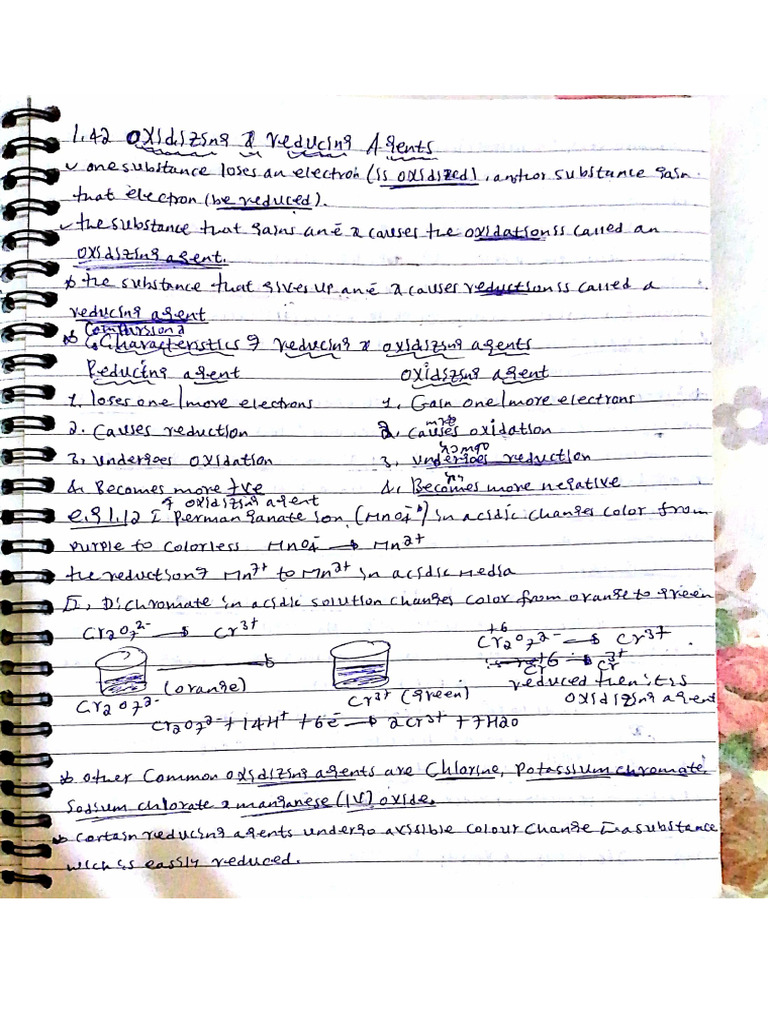 1.42 Oxidizing & reducing Agents
✓ one substance loses an electron (is oxidized), another substance gain
that electron (be reduced).
✓ the substance that gains an ē & causes the oxidation is called an
oxidizing agent.
* the substance that gives up an ē & causes reduction is called a
reducing agent
Comparison &
* Characteristics of reducing & oxidizing agents
Reducing agent oxidizing agent
1. loses one/more electrons 1. Gain one/more electrons
2. Causes reduction 2. Causes oxidation
3. undergoes oxidation 3. undergoes reduction
4. Becomes more +ve 4. Becomes more negative
of oxidizing agent
e.g 1.12 I Permanganate ion (MnO4⁻) in acidic changes color from
purple to colorless MnO4⁻ → Mn2+
the reduction of Mn7+ to Mn2+ in acidic media
II, Dichromate in acidic solution changes color from orange to green
Cr2O7²⁻ → Cr3+
+6
Cr2O7²⁻ → Cr3+
Cr+6 → Cr3+
(orange)
reduced then it is
Cr2O7²⁻
Cr3+ (green)
oxidizing agent
Cr2O7²⁻ + 14H+ + 6ē → 2Cr3+ + 7H2O
* Other Common oxidizing agents are Chlorine, Potassium chromate,
Sodium chlorate & manganese (IV) oxide.
* Certain reducing agents undergo a visible colour change a substance
wich is easily reduced.